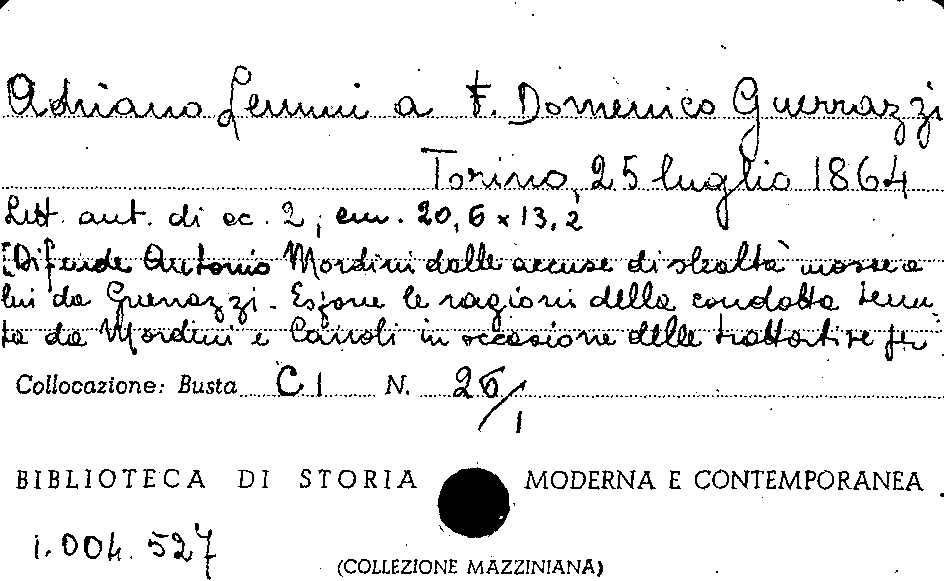 Adriano Lemmi a F. Domenico Guerrazzi
Torino, 25 luglio 1864
Lett. aut. di cc. 2, cm. 20,6 x 13,2
[Difende Antonio Mordini dalle accuse di slealtà mosse a
lui da Guerrazzi. Espone le ragioni della condotta tenu-
ta da Mordini e Cairoli in occasione delle trattative per
Collocazione: Busta C I N. 26/1
BIBLIOTECA DI STORIA MODERNA E CONTEMPORANEA
1.004.527
(COLLEZIONE MAZZINIANA)